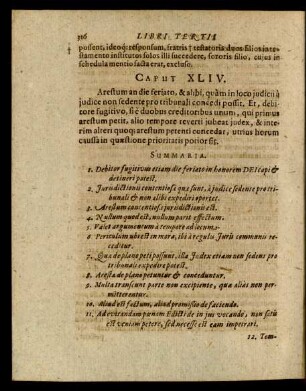 316 LIBRI TERTII
possent, ideoq; responsum, fratris † testatoris duos filios in te-
stamento institutos solos illi succedere, sororis filio, cujus in
schedula mentio facta erat, excluso.
CAPUT XLIV.
Arestum an die feriato, & alibi, quàm in loco judicii à
judice non sedente pro tribunali concedi possit. Et, debi-
tore fugitivo, si è duobus creditoribus unum, qui primus
arestum petit, alio tempore reverti jubeat judex, & inte-
rim alteri quoq; arestum petenti concedat, utrius horum
causa in quæstione prioritatis potior sit.
SUMMARIA.
1. Debitor fugitivus etiam die feriato in honorem DEI capi &
detineri potest.
2. Jurisdictionis contentiosæ quæ sunt, à judice sedente pro tri-
bunali & non alibi expediri oportet.
3. Arestum contentiosæ jurisdictionis est.
4. Nullum quod est, nullum parit effectum.
5. Valet argumentum à tempore ad locum.
6. Periculum ubi est in mora, ibi à regulis Juris communis re-
ceditur.
7. Quæ de plano peti possunt, illa Judex etiam non sedens pro
tribunali expedire potest.
8. Aresta de plano petuntur & conceduntur.
9. Multa transeunt parte non excipiente, quæ aliàs non per-
mitterentur.
10. Aliud est factum, aliud promissio de faciendo.
11. Ad evitandam pœnam Edicti de in jus vocando, non satis
est veniam petere, sed necesse est eam impetrari.
12. Tem-